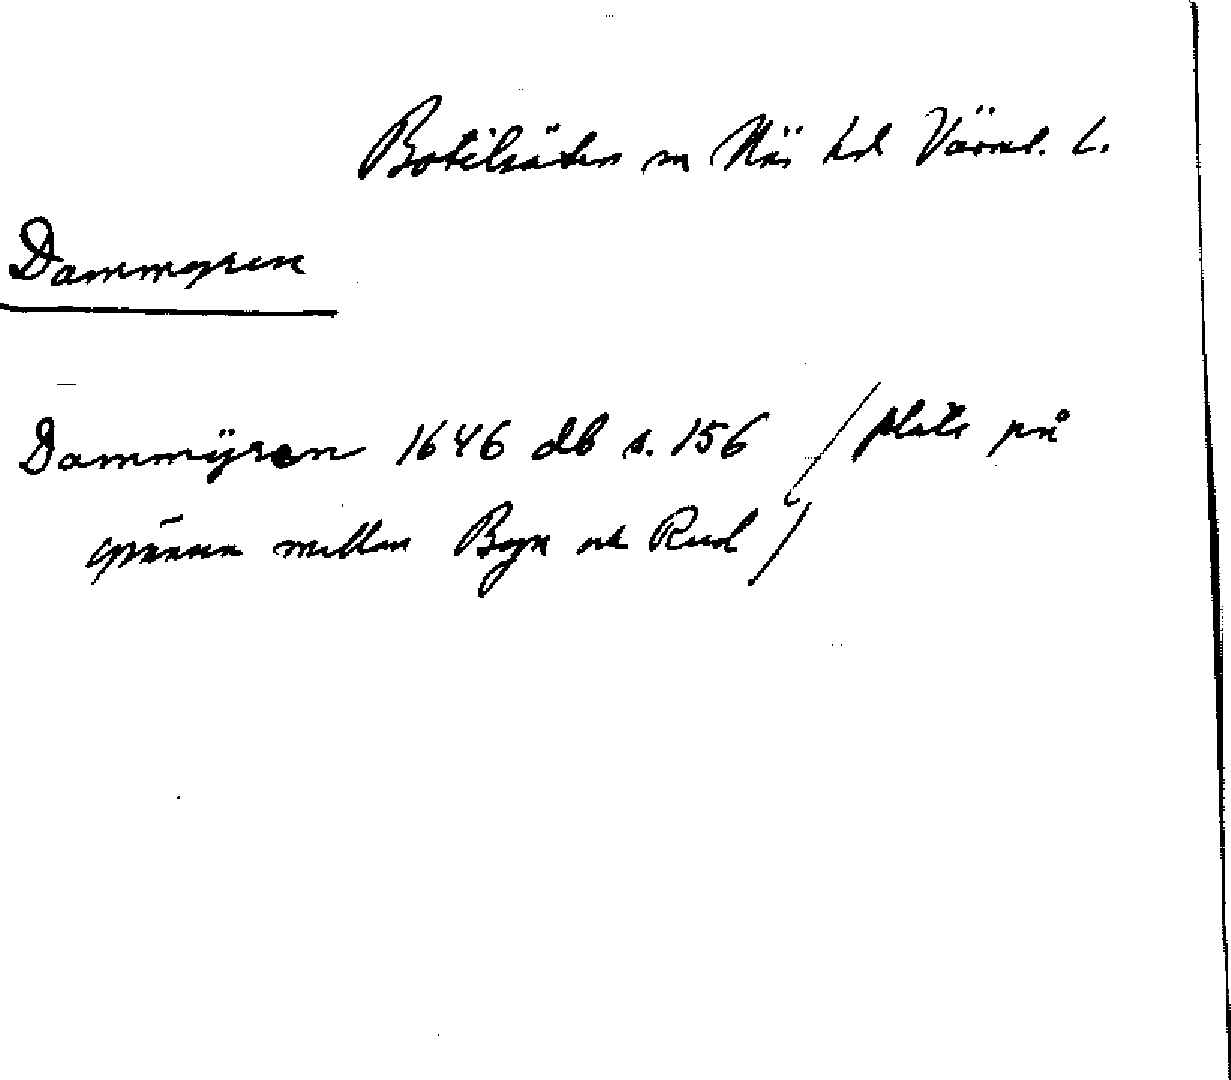 Botilsäters sn Näs hd Värml. l.
Dammyren
Dammÿren 1646 db s. 156 /plats på
gränsen mellan Byn och Rud/